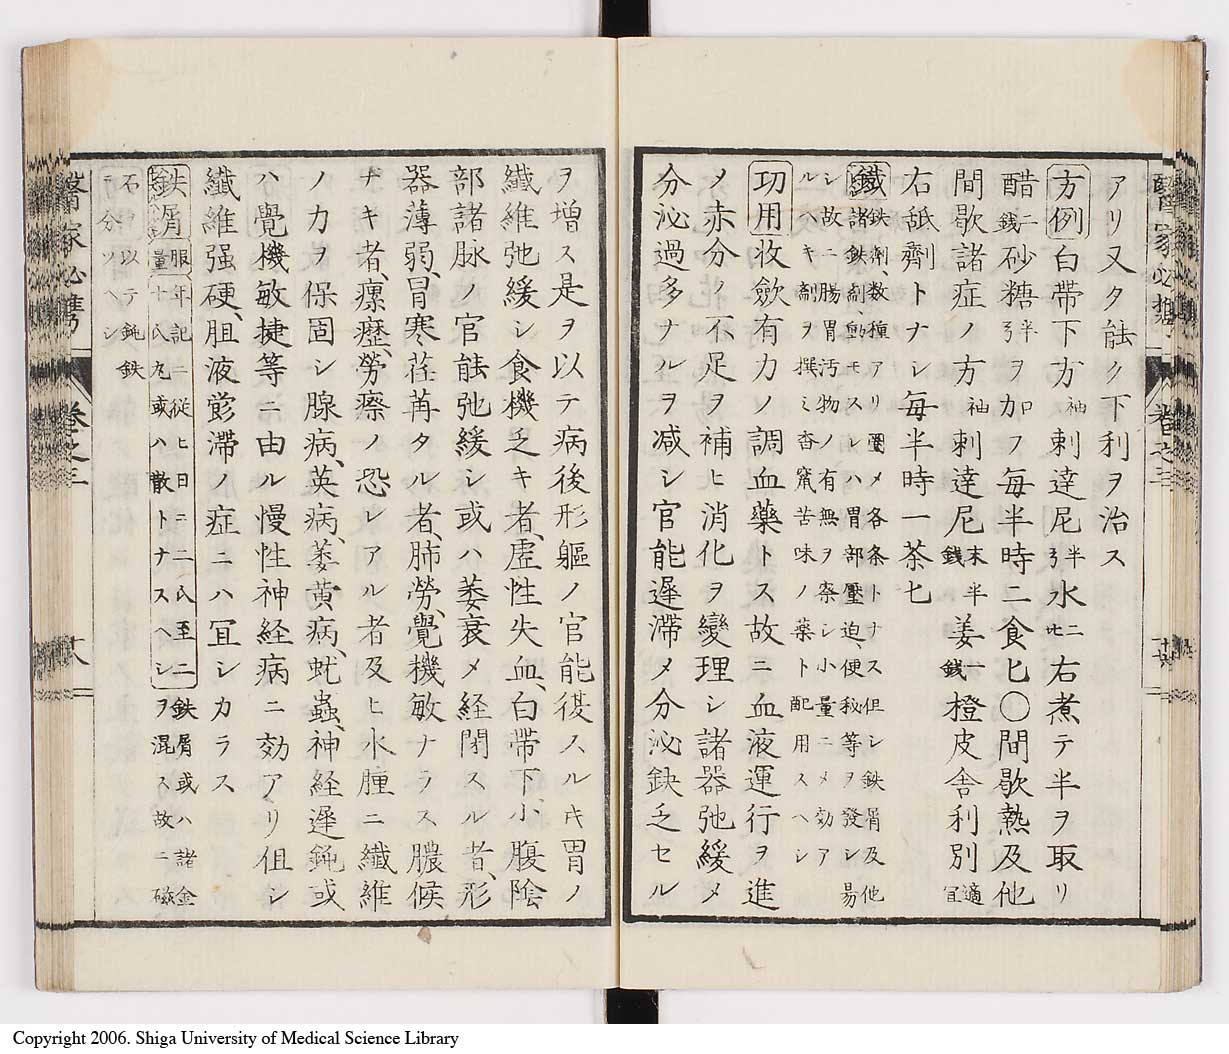 アリ又タ能ク下利ヲ治ス
方例 白帯下方 袖 刺達尼 半弓 水 二 右煮テ半ヲ取リ
醋 二銭 砂糖 半弓 ヲ加フ毎半時二食匕〇間歇熱及他
間歇諸症ノ方 袖 刺達尼 末半銭 姜 一銭 橙皮舎利別 適宜
右舐劑トナシ毎半時一茶匕
鐵 鉄剤数種アリ 圏メ各条トナス但シ鉄屑及他
諸鉄剤 モスレハ胃部壓迫、便秘等ヲ發シ易
シ故ニ腸胃汚物ノ有無ヲ察シ小量ニメ効ア
ルヘキ剤ヲ撰ミ 苦味ノ藥ト配用スヘシ
功用 收斂有力ノ調血藥トス故ニ血液運行ヲ進
メ赤分ノ不足ヲ補ヒ消化ヲ變理シ諸器弛緩メ
分泌過多ナルヲ減シ官能遲滞メ分泌鈌乏セル
ヲ増ス是ヲ以テ病後形軀ノ官能復スルキ胃ノ
纎維弛緩シ食機乏キ者、虚性失血、白帯下、小腹陰
部諸脉ノ官能弛緩シ或ハ萎衰メ経閉スル者、形
器薄弱、胃寒荏苒タル者、肺勞、覺機敏ナラス膿候
ナキ者、瘰癧、勞瘵ノ恐レアル者及ヒ水腫ニ纎維
ノ力ヲ保固シ腺病、英病、萎黄病、蚘蟲、神経遲鈍或
ハ覺機敏捷等ニ由ル慢性神経病ニ効アリ但シ
纎維强硬、胆液鬱滞ノ症ニハ宜シカラス
鉄屑 服年記ニ従ヒ日ニ二氏至二 鉄屑或ハ諸金
量十氏丸或ハ散トナスヘシ ヲ混ス故ニ磁
石ヲ以テ鈍鉄
ヲ分ツヘシ
醫家必携
巻之三
十八
醫家必携
巻之三
Copyright 2006. Shiga University of Medical Science Library